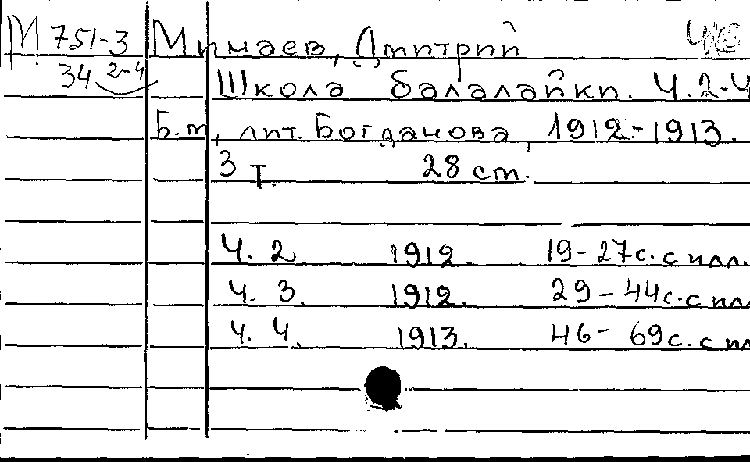 М 751-3 Минаев, Дмитрий
34 2-4 Школа балалайки. Ч.2-4
Б.m, лит. Богданова, 1912-1913.
3 т. 28 cm.
Ч. 2 1912. 19-27с. с илл.
Ч. 3. 1912. 29-44с. с ил
Ч. 4. 1913. 46-69с. с ил